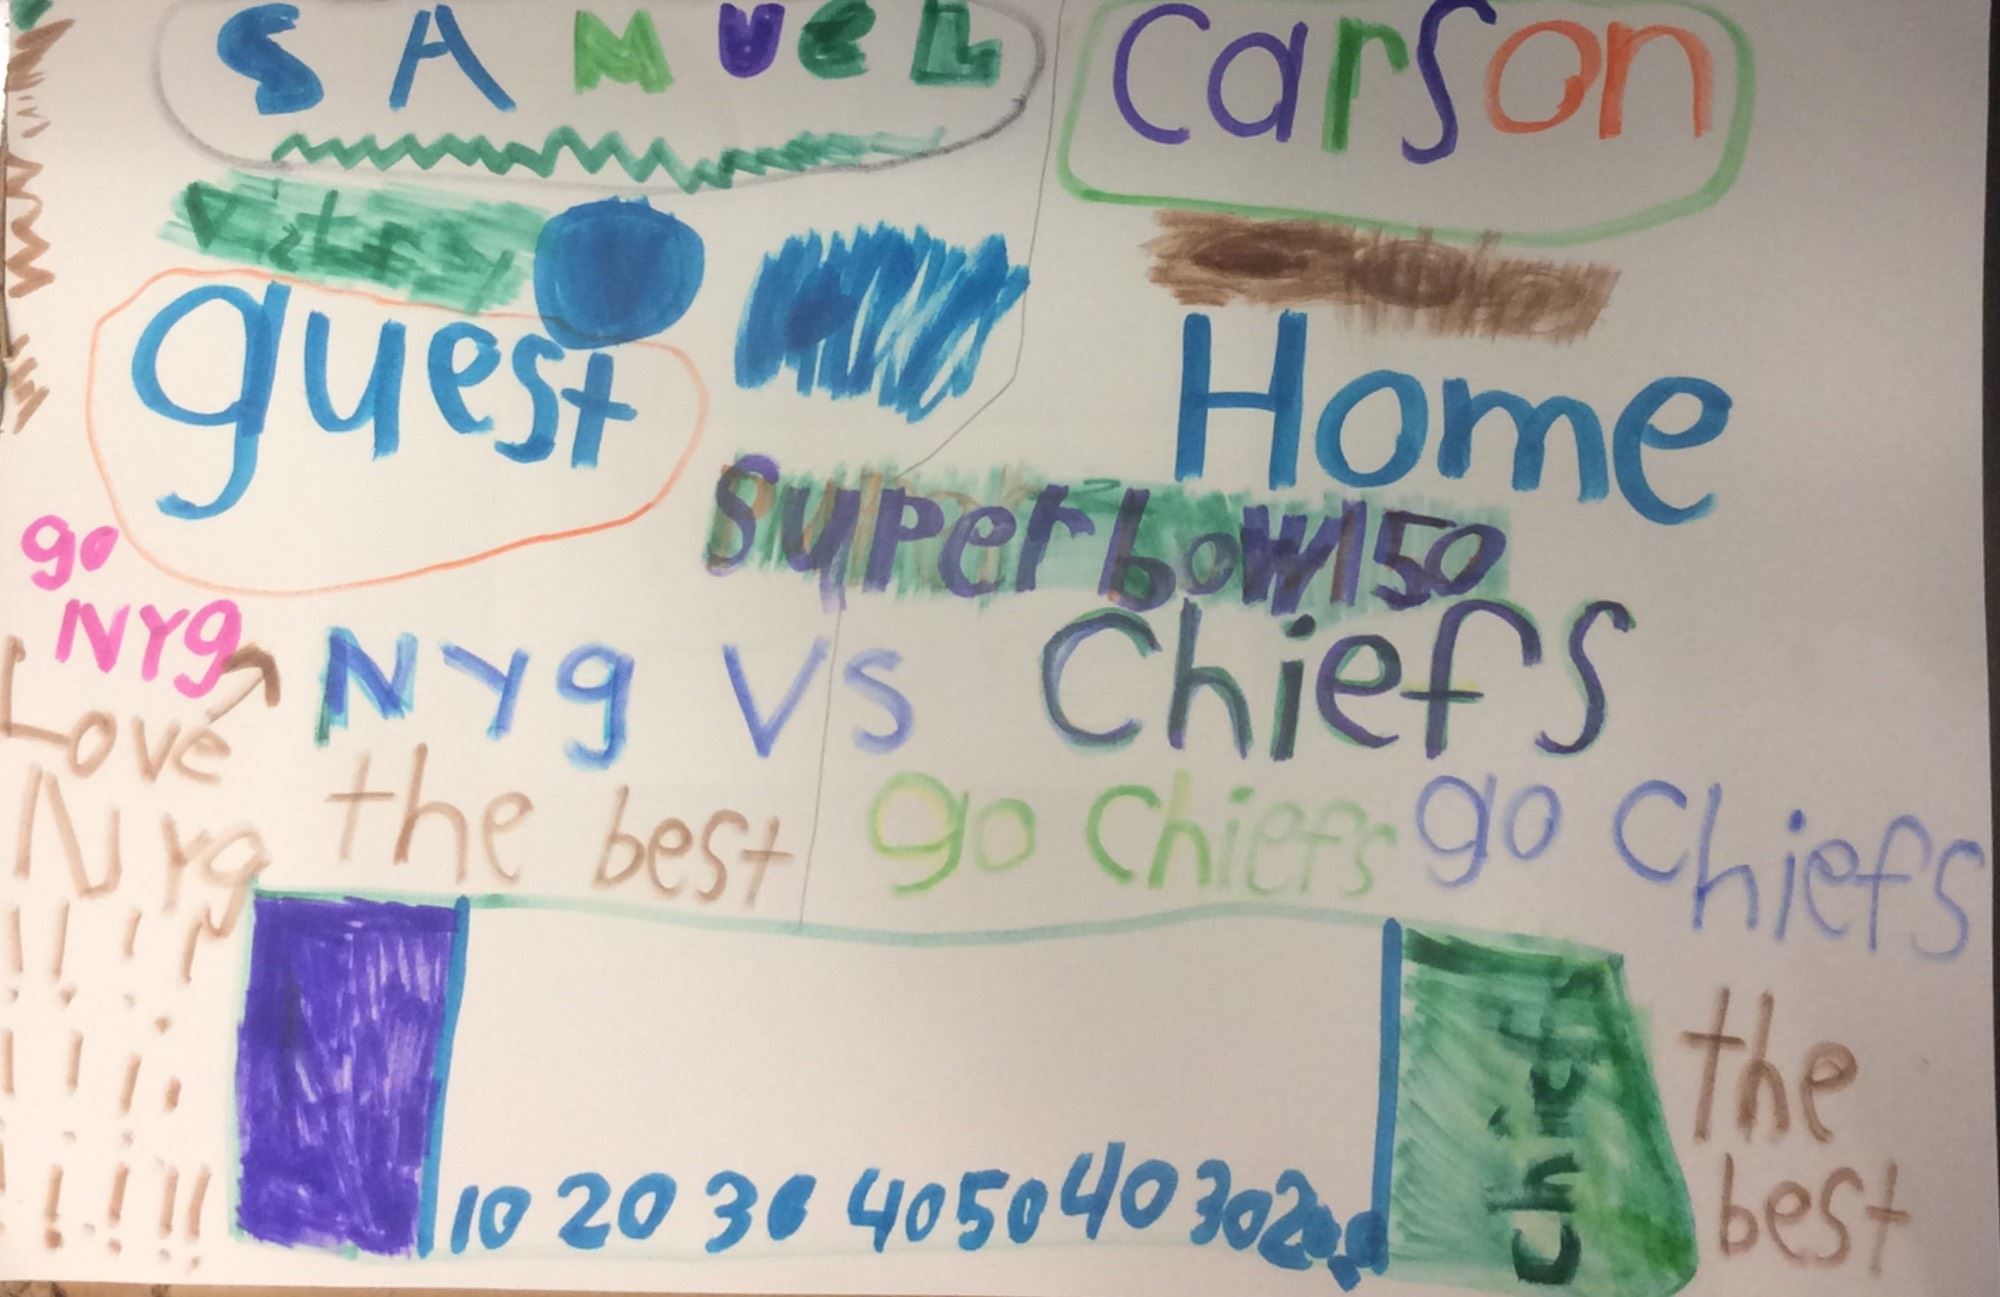 SAMUEL
Carson
guest
Home
Superbowl 50
go
NYg
Nyg VS Chiefs
Love
Nyg
the best
go Chiefs go Chiefs
!!!!
!!!!
!!!!!
10 20 30 40 50 40 30 20
Chiefs
the
best